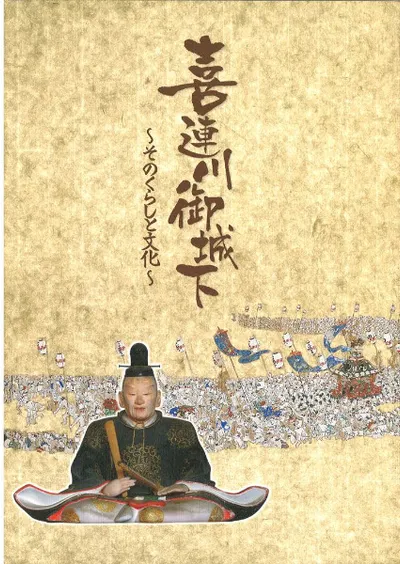 喜連川御城下
～そのくらしと文化～